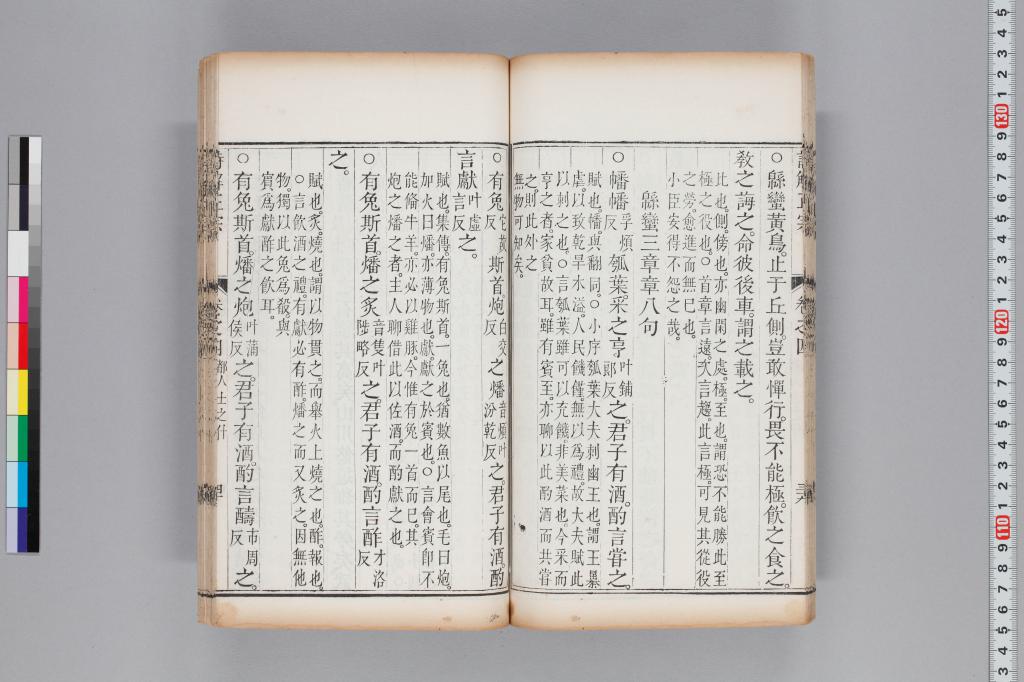 ○緜蠻黃鳥。止于丘側。豈敢憚行。畏不能極。飮之食之。
敎之誨之。命彼後車。謂之載之。
比也。側。傍也。亦幽閑之處。極。至也。謂恐不能勝此至
極之役也。○首章言遠。次言趨。此言極。可見其從役
之勞。愈進而無已也。
小臣安得不怨之哉。
緜蠻三章章八句
○幡幡孚煩反瓠葉。采之亨叶鋪郎反之。君子有酒。酌言甞之。
賦也。幡。與翻同。○小序瓠葉大夫刺幽王也。謂王暴
虐。以致乾旱水溢。人民饑僅。無以爲禮。故大夫賦此
以刺之也。○言瓠葉雖可以充饑。非美菜也。今采而
亨之者。家貧故耳。雖有賓至。亦聊以此酌酒而共甞
之。則此外之
無物可知矣。
○有兔斯首。炮白交反之燔音煩叶汾乾反之。君子有酒。酌
言獻叶虛言反之。
賦也。集傳。有兔斯首。一兔也。猶數魚以尾也。毛曰炮。
加火曰燔。亦薄物也。獻。獻之於賓也。○言會賓卽不
能脩牛羊。亦必以雞豚。今惟有兔一首而已。其
炮之燔之者。主人聊借此以佐酒。而酌獻之也。
○有兔斯首。燔之炙音隻叶陟略反之。君子有酒。酌言酢才洛反
之。
賦也。炙。燒也。謂以物貫之。而舉火上燒之也。酢。報也。
○言飮酒之禮。有獻必有酢。燔之而又炙之。因無他
物。獨以此兔爲殽。與
賓爲獻酢之飮耳。
○有兔斯首。燔之炮叶蒲侯反之。君子有酒。酌言醻市周反之。
都人士之什